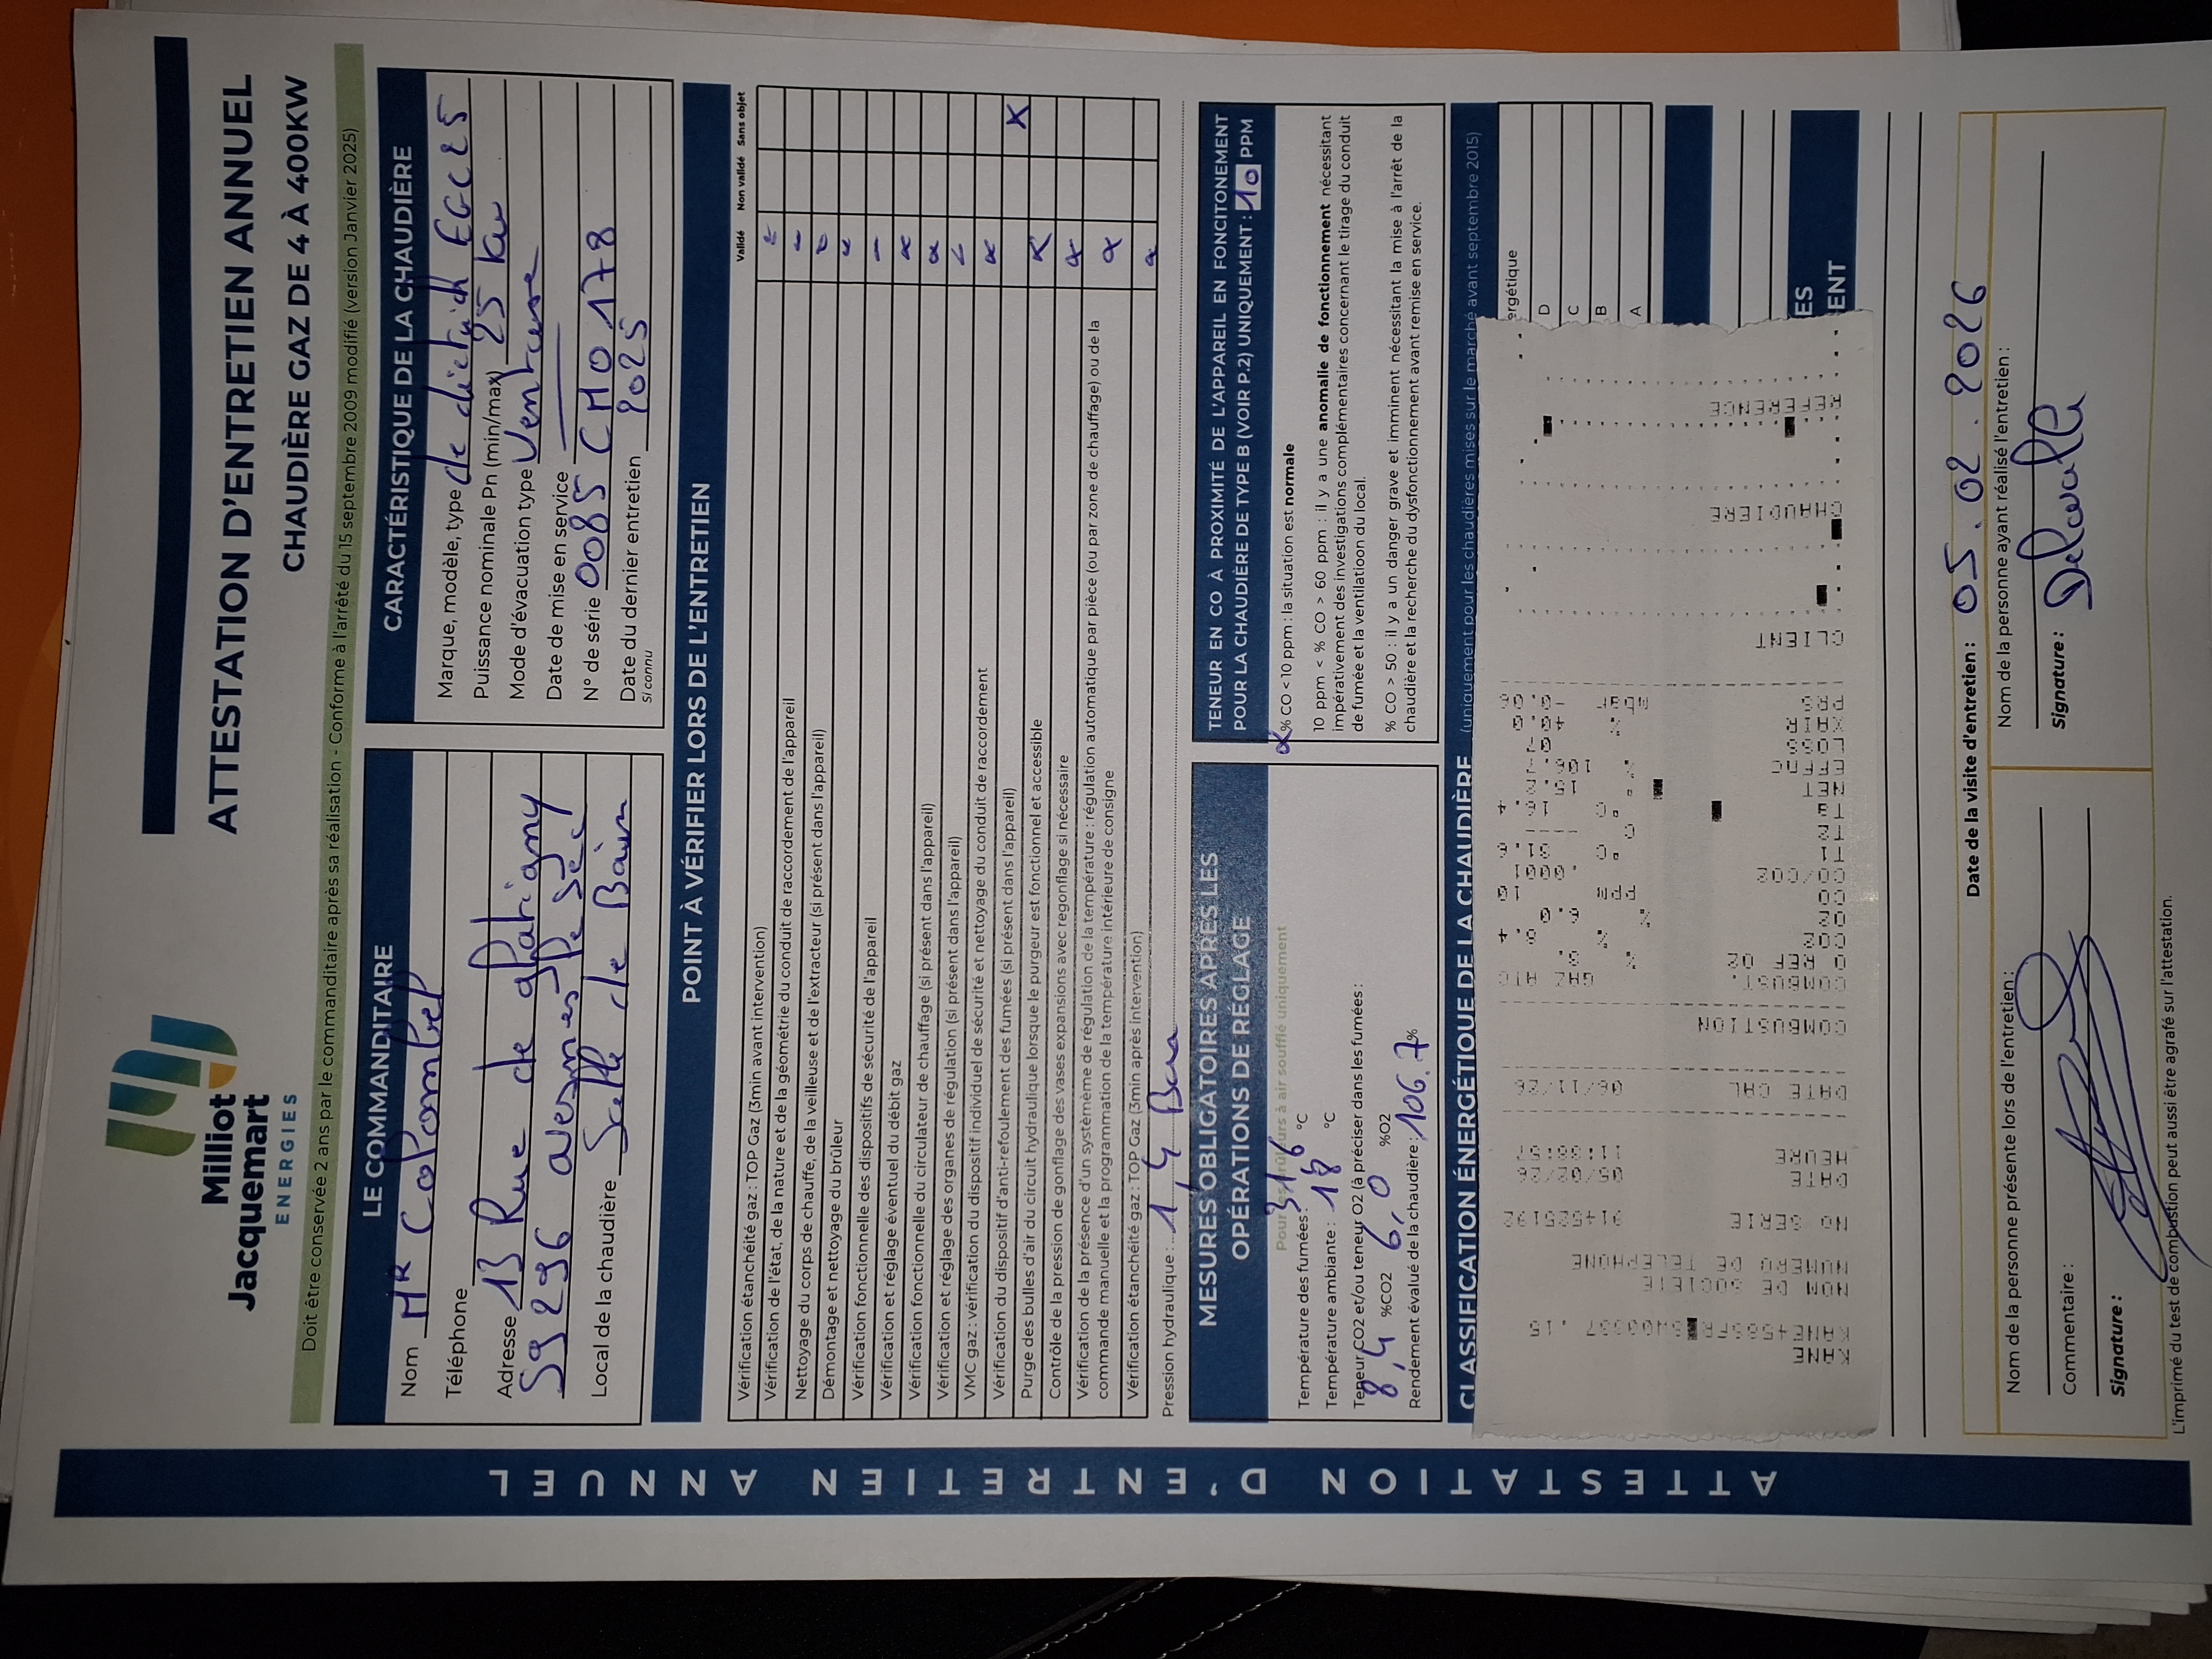 Milliot
Jacquemart
ENERGIES
ATTESTATION D'ENTRETIEN ANNUEL
CHAUDIÈRE GAZ DE 4 À 400KW
Doit être conservée 2 ans par le commanditaire après sa réalisation - Conforme à l'arrêté du 15 septembre 2009 modifié (version Janvier 2025)
ATTESTATION D'ENTRETIEN ANNUEL
LE COMMANDITAIRE
Nom MR Colombel
Téléphone
Adresse 13 Rue de
59296 avesnes le sec
Local de la chaudière Salle de Bain
CARACTÉRISTIQUE DE LA CHAUDIÈRE
Marque, modèle, type de dietrich EGC 25
Puissance nominale Pn (min/max) 25 kw
Mode d'évacuation type Ventouse
Date de mise en service
N° de série 0085 CM0178
Date du dernier entretien 2025
si connu
POINT À VÉRIFIER LORS DE L'ENTRETIEN
Validé Non validé Sans objet
Vérification étanchéité gaz : TOP Gaz (3min avant intervention)
Vérification de l'état, de la nature et de la géométrie du conduit de raccordement de l'appareil
Nettoyage du corps de chauffe, de la veilleuse et de l'extracteur (si présent dans l'appareil)
Démontage et nettoyage du brûleur
Vérification fonctionnelle des dispositifs de sécurité de l'appareil
Vérification et réglage éventuel du débit gaz
Vérification fonctionnelle du circulateur de chauffage (si présent dans l'appareil)
Vérification et réglage des organes de régulation (si présent dans l'appareil)
VMC gaz : vérification du dispositif individuel de sécurité et nettoyage du conduit de raccordement
Vérification du dispositif d'anti-refoulement des fumées (si présent dans l'appareil) X
Purge des bulles d'air du circuit hydraulique lorsque le purgeur est fonctionnel et accessible
Contrôle de la pression de gonflage des vases expansions avec regonflage si nécessaire
Vérification de la présence d'un systèmème de régulation de la température : régulation automatique par pièce (ou par zone de chauffage) ou de la
commande manuelle et la programmation de la température intérieure de consigne
Vérification étanchéité gaz : TOP Gaz (3min après intervention)
Pression hydraulique : 1,4 Bar
MESURES OBLIGATOIRES APRÈS LES
OPÉRATIONS DE RÉGLAGE
Pour les brûleurs à air soufflé uniquement
Température des fumées : 31,6 °C
Température ambiante : 18 °C
Teneur CO2 et/ou teneur O2 (à préciser dans les fumées :
8,4 %CO2 6,0 %O2
Rendement évalué de la chaudière : 106.7%
TENEUR EN CO À PROXIMITÉ DE L'APPAREIL EN FONCITONEMENT
POUR LA CHAUDIÈRE DE TYPE B (VOIR P.2) UNIQUEMENT : 10 PPM
% CO < 10 ppm : la situation est normale
10 ppm < % CO > 60 ppm : il y a une anomalie de fonctionnement nécessitant
impérativement des investigations complémentaires concernant le tirage du conduit
de fumée et la ventilation du local.
% CO > 50 : il y a un danger grave et imminent nécessitant la mise à l'arrêt de la
chaudière et la recherche du dysfonctionnement avant remise en service.
CLASSIFICATION ÉNERGÉTIQUE DE LA CHAUDIÈRE (uniquement pour les chaudières mises sur le marché avant septembre 2015)
ergétique
D
C
B
A
ES
ENT
KANE
NOM DE SOCIETE
NUMERO DE TELEPHONE
NO SERIE 914525192
DATE 05/02/26
HEURE
DATE CAL 06/11/26
COMBUSTION
COMBUST. GAZ
O REF O2 %
CO2 % 8.4
O2 % 6.0
CO ppm 10
CO/CO2 .0001
T1 °C 31.6
T2 °C ----
Ta °C 16.4
NET °C
EFF % 106.7
LOSS
XAIR % 40.0
PRS mbar -0.06
CLIENT
CHAUDIERE
REFERENCE
Date de la visite d'entretien : 05.02.2026
Nom de la personne présente lors de l'entretien :
Commentaire :
Signature :
Nom de la personne ayant réalisé l'entretien :
Signature : Delwalle
L'imprimé du test de combustion peut aussi être agrafé sur l'attestation.